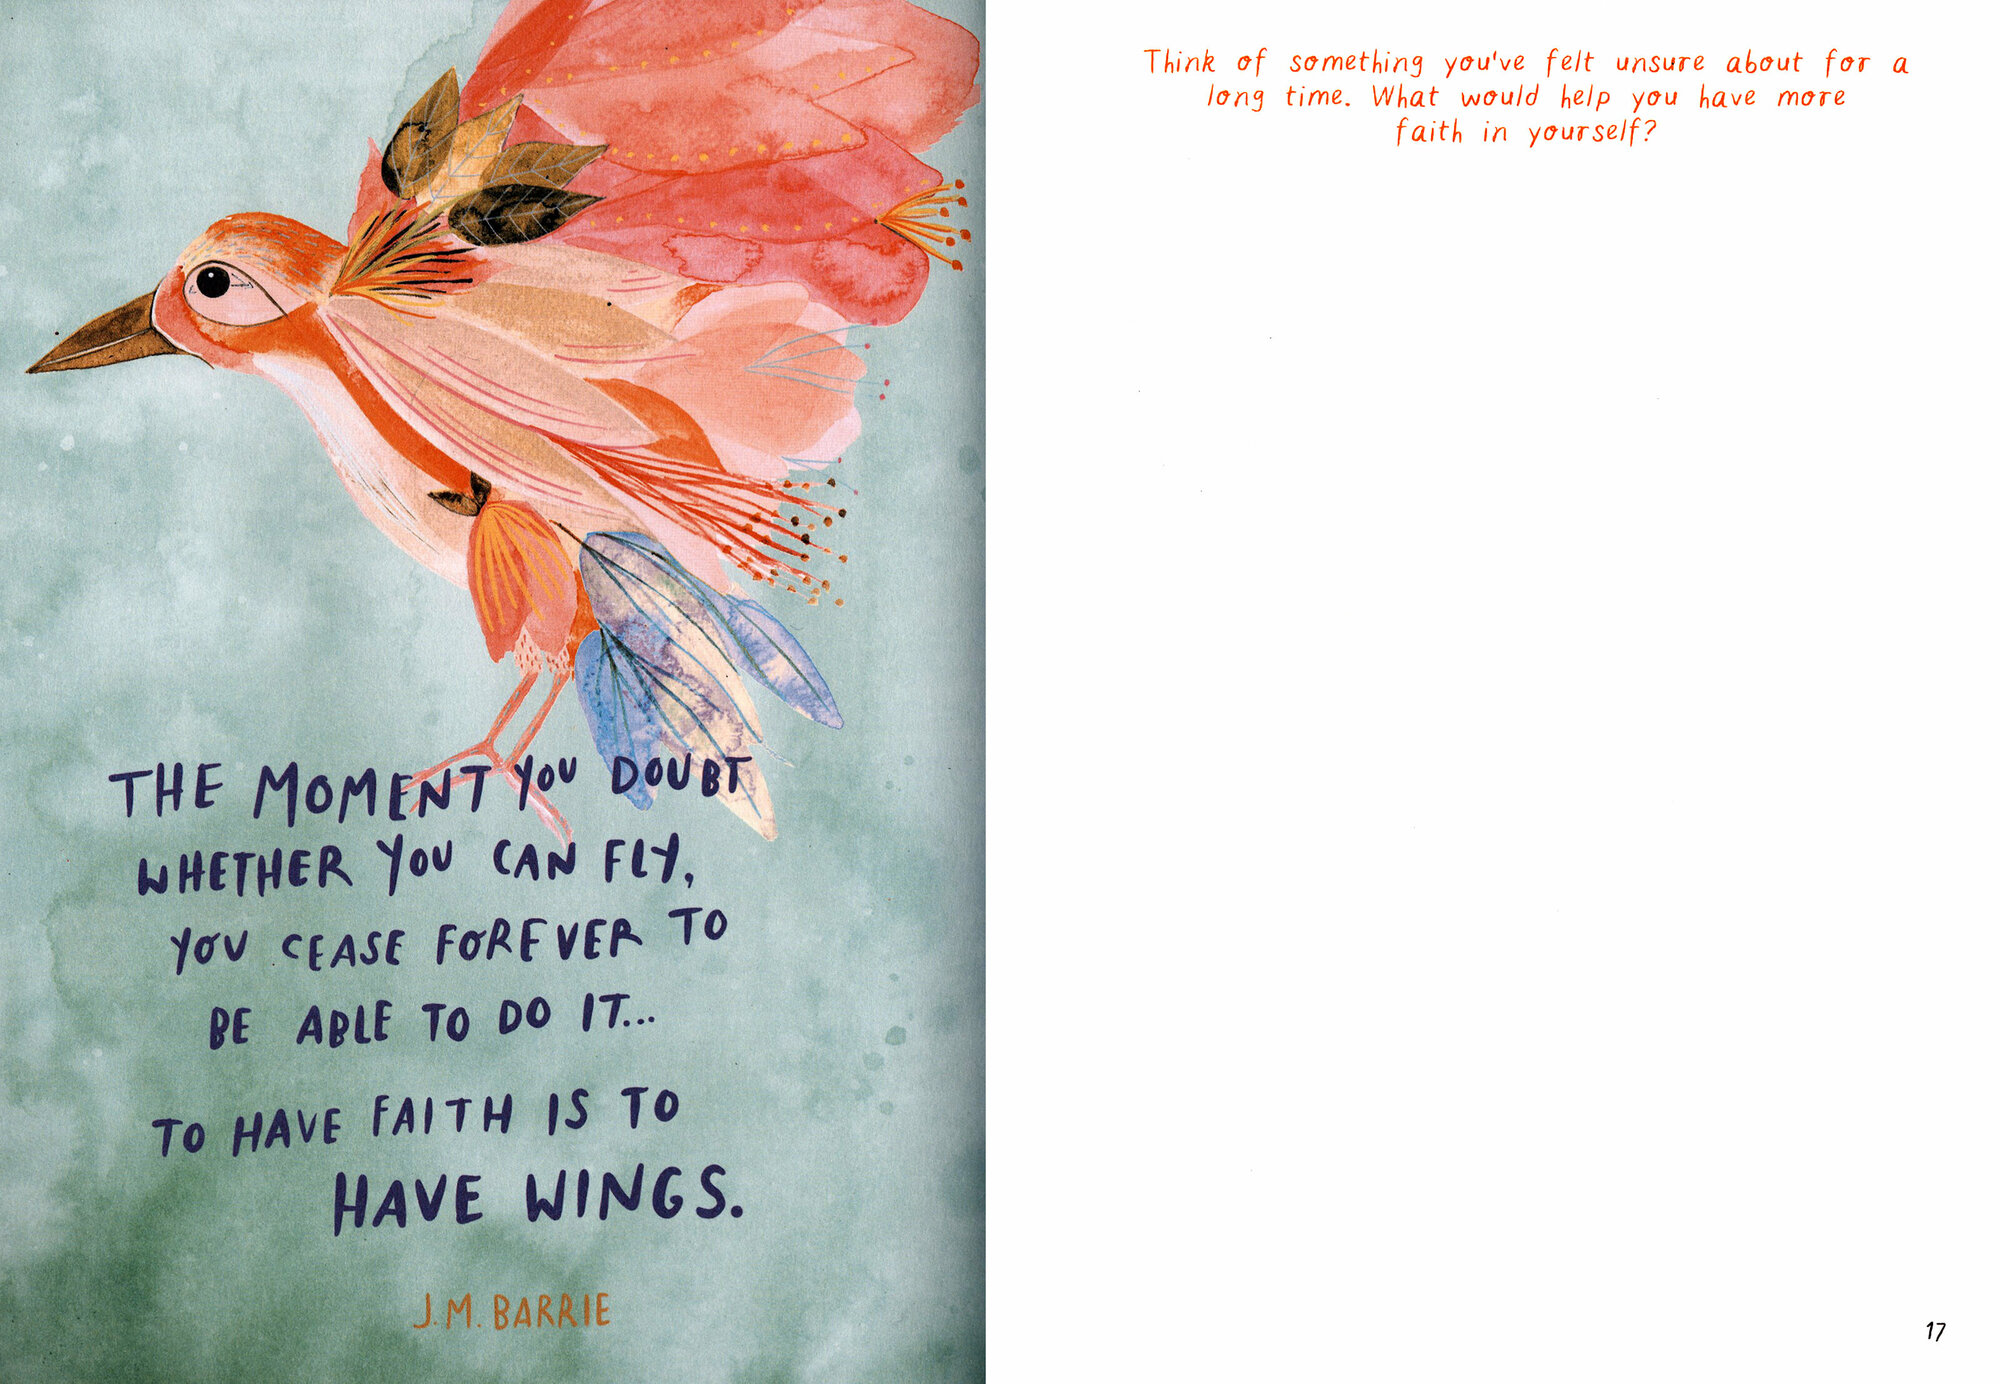 THE MOMENT YOU DOUBT
WHETHER YOU CAN FLY,
YOU CEASE FOREVER TO
BE ABLE TO DO IT...
TO HAVE FAITH IS TO
HAVE WINGS.
J.M. BARRIE
Think of something you've felt unsure about for a
long time. What would help you have more
faith in yourself?
17